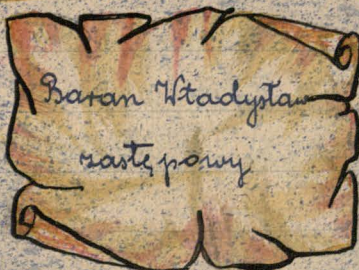 Baran Władysław
zastępowy